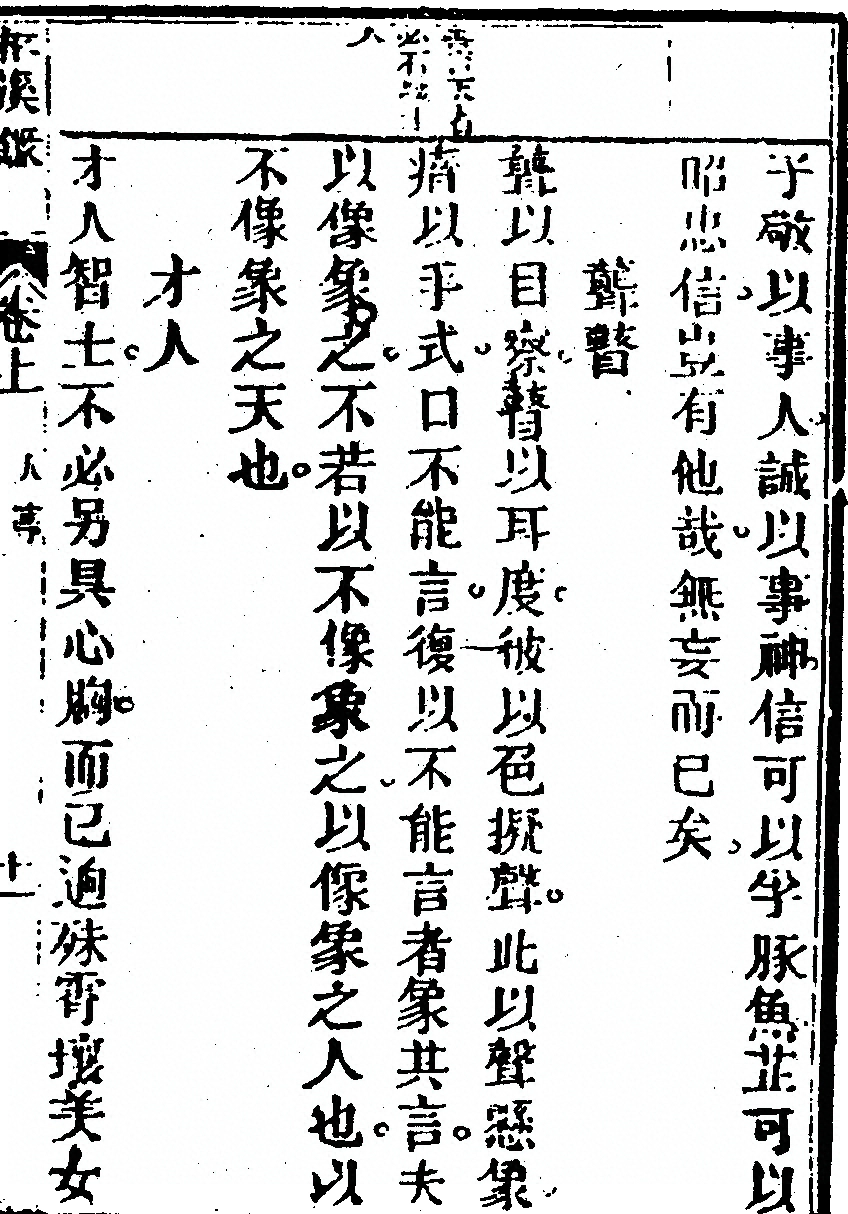 乎敬以事人誠以事神信可以孚豚魚芷可以
昭忠信豈有他哉無妄而已矣
聾瞽
聾以目察瞽以耳度彼以色擬聲此以聲懸象
瘖以手式口不能言復以不能言者象其言夫
以像象之不若以不像象之以像象之人也以
不像象之天也
才人
才人智士不必另具心胸而已逈殊霄壤美女
卷上